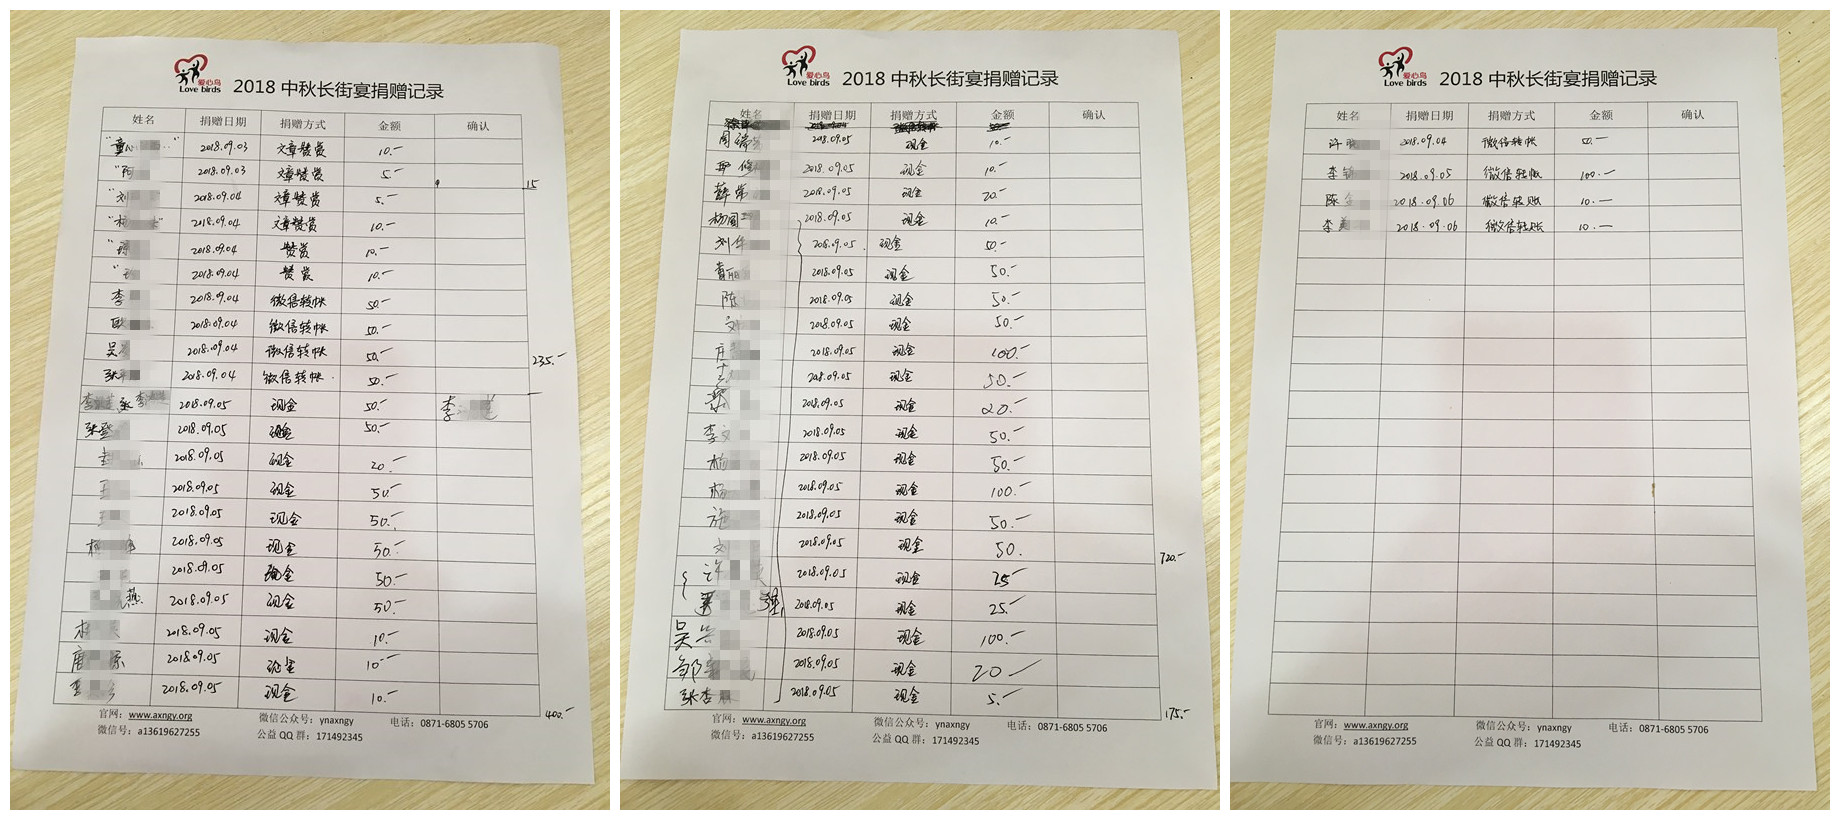 爱心鸟
Love birds
2018 中秋长街宴捐赠记录
姓名 捐赠日期 捐赠方式 金额 确认
2018.09.03 文章赞赏 10.-
2018.09.03 文章赞赏 5.-
15
"刘 2018.09.04 文章赞赏 5.-
"杨 2018.09.04 文章赞赏 10.-
2018.09.04 赞赏 10.-
2018.09.04 赞赏 10.-
李 2018.09.04 微信转帐 50.-
2018.09.04 微信转帐 50.-
吴 2018.09.04 微信转帐 50.-
235.-
张 2018.09.04 微信转帐 50.-
李 李 2018.09.05 现金 50.- 李
张 2018.09.05 现金 50.-
2018.09.05 现金 20.-
王 2018.09.05 现金 50.-
2018.09.05 现金 50.-
杨 2018.09.05 现金 50.-
2018.09.05 现金 50.-
燕 2018.09.05 现金 50.-
2018.09.05 现金 10.-
唐 2018.09.05 现金 10.-
李 2018.09.05 现金 10.-
400.-
官网：www.axngy.org 微信公众号：ynaxngy 电话：0871-6805 5706
微信号：a13619627255 公益 QQ 群：171492345
爱心鸟
Love birds
2018 中秋长街宴捐赠记录
姓名 捐赠日期 捐赠方式 金额 确认
周 2018.09.05 现金 10.-
2018.09.05 现金 10.-
薛 2018.09.05 现金 20.-
杨 2018.09.05 现金 10.-
刘 2018.09.05. 现金 50.-
2018.09.05 现金 50.-
陈 2018.09.05 现金 50.-
2018.09.05 现金 50.-
庄 2018.09.05 现金 100.-
2018.09.05 现金 50.-
2018.09.05 现金 20.-
李文 2018.09.05 现金 50.-
梅 2018.09.05 现金 50.-
杨 2018.09.05 现金 100.-
施 2018.09.05 现金 50.-
刘 2018.09.05 现金 50.
720.-
许 2018.09.05 现金 25.-
2018.09.05 现金 25.-
吴 2018.09.05 现金 100.-
邹 2018.09.05 现金 20-
张杏 2018.09.05 现金 5.-
175.-
官网：www.axngy.org 微信公众号：ynaxngy 电话：0871-6805 5706
微信号：a13619627255 公益 QQ 群：171492345
爱心鸟
Love birds
2018 中秋长街宴捐赠记录
姓名 捐赠日期 捐赠方式 金额 确认
许 2018.09.04 微信转帐 50.-
李 2018.09.05 微信转账 100.-
陈 2018.09.06 微信转账 10.-
李 2018.09.06 微信转账 10.-
官网：www.axngy.org 微信公众号：ynaxngy 电话：0871-6805 5706
微信号：a13619627255 公益 QQ 群：171492345